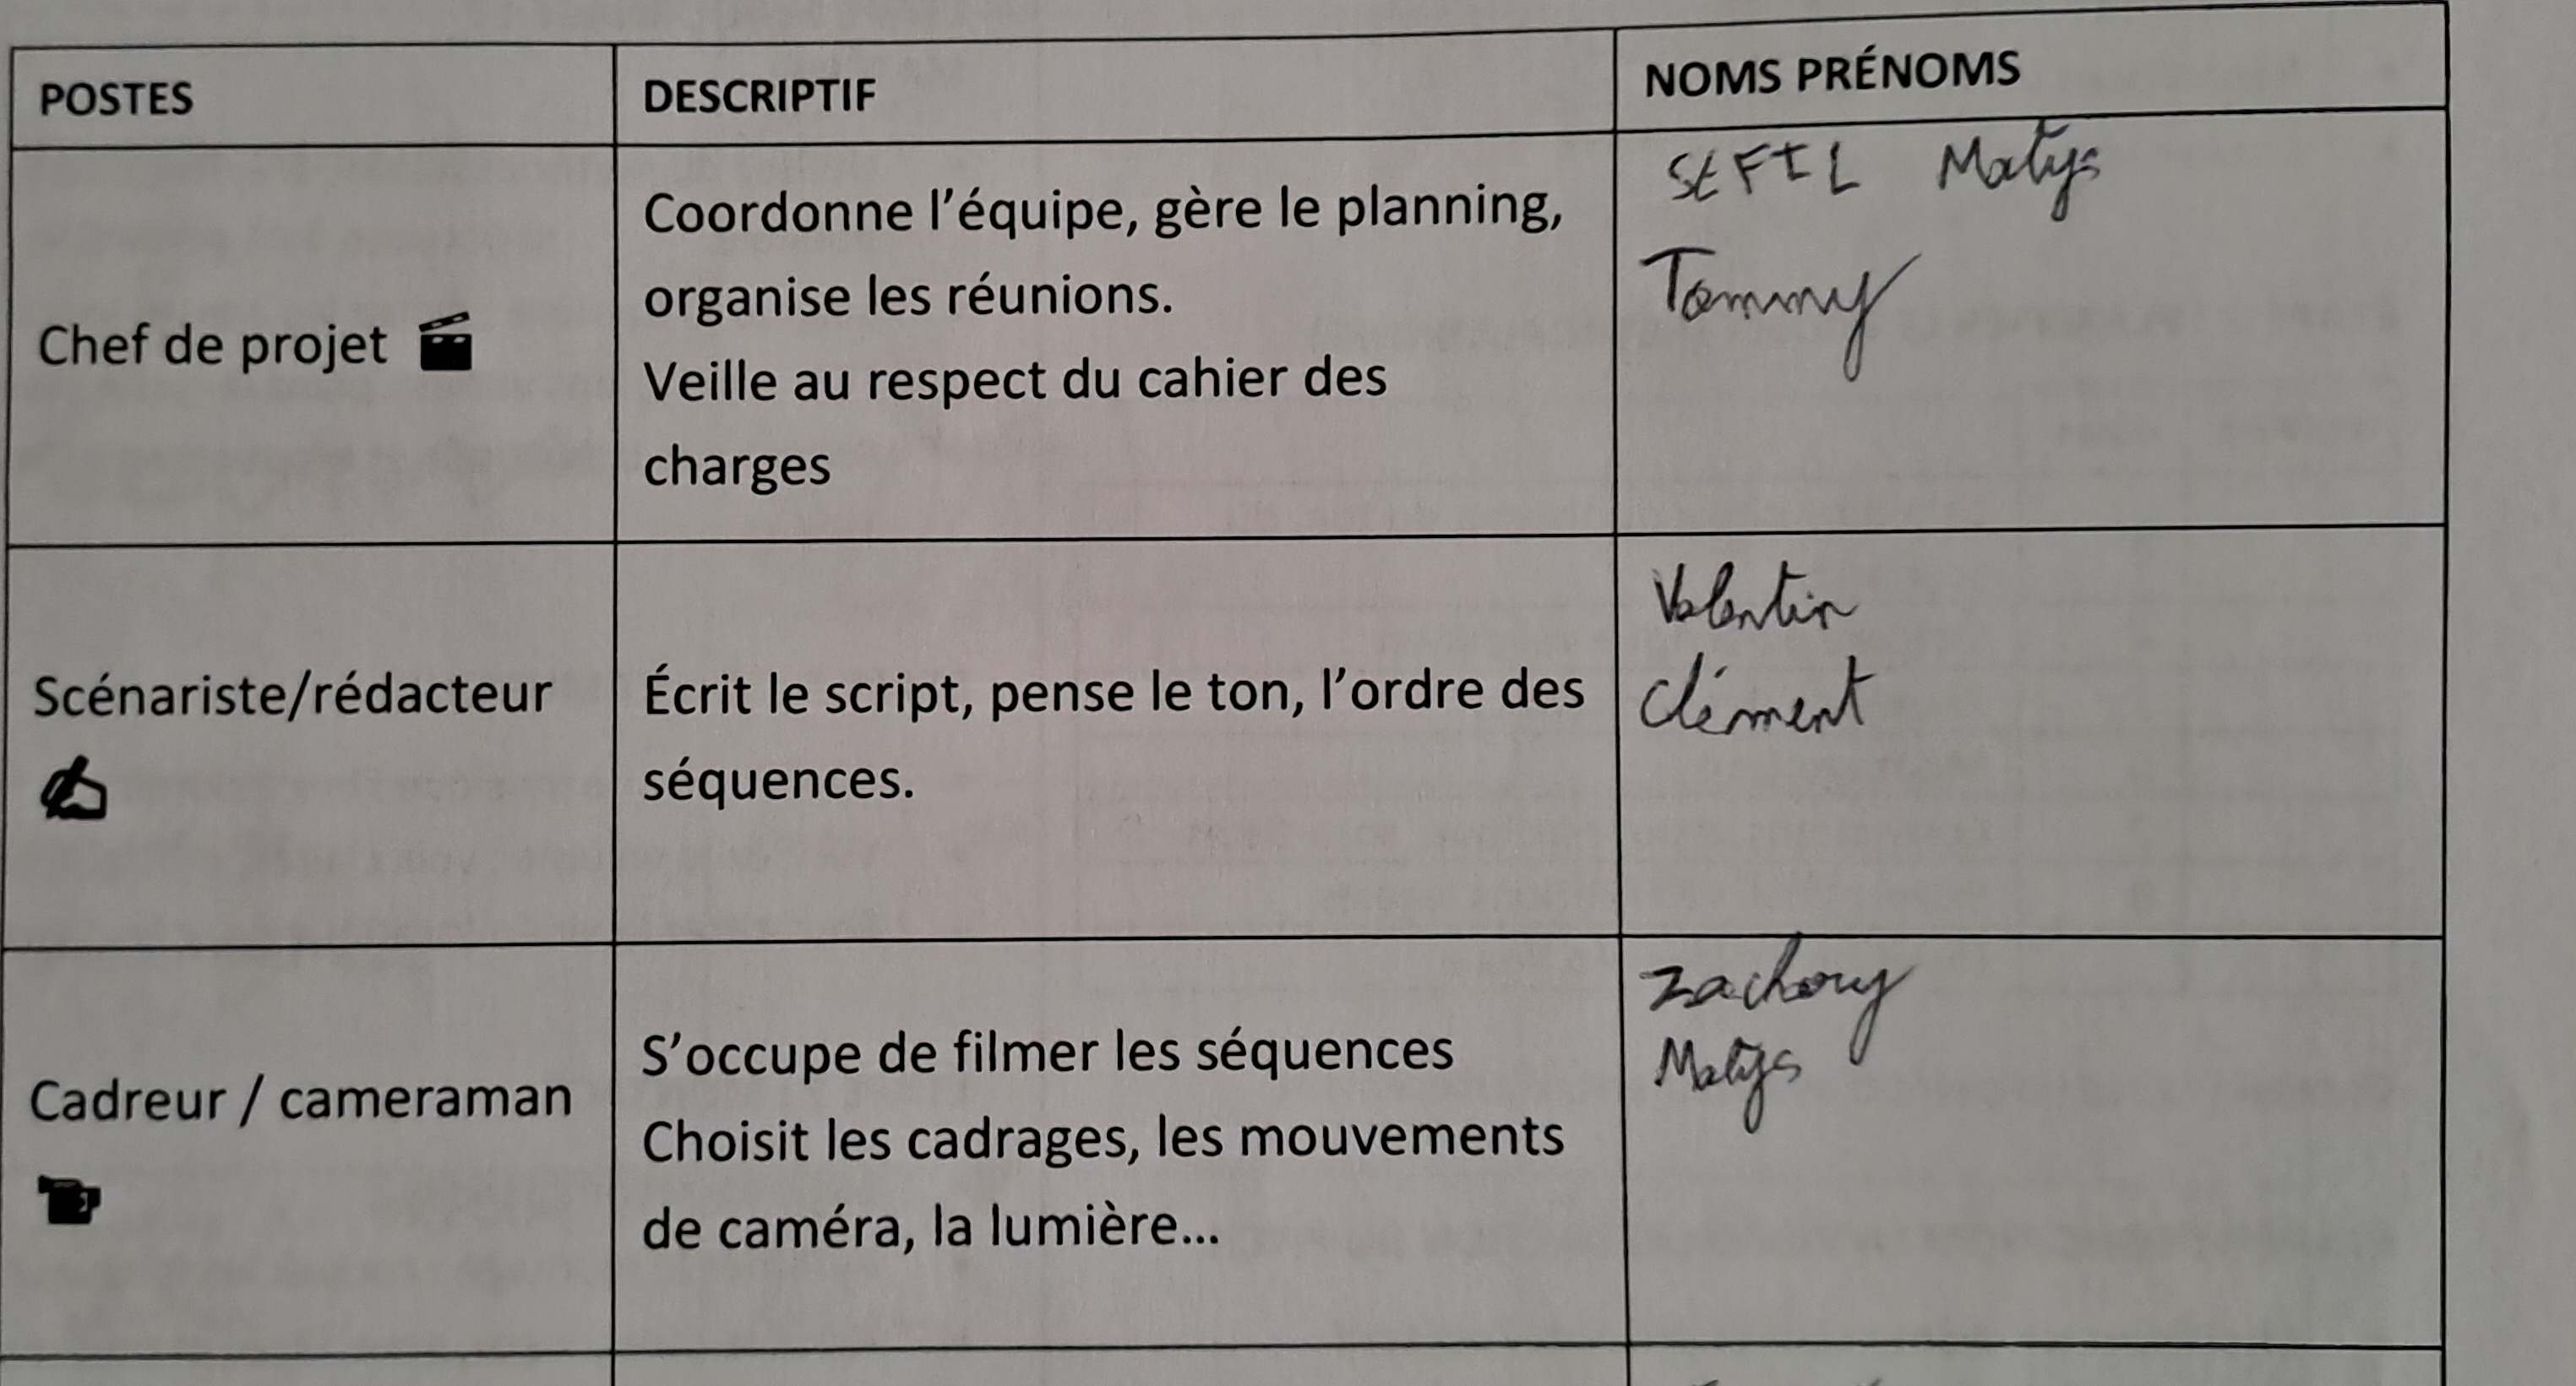 POSTES DESCRIPTIF NOMS PRÉNOMS
Chef de projet
Coordonne l'équipe, gère le planning,
organise les réunions.
Veille au respect du cahier des
charges
SEFIL Matys
Tommy
Scénariste/rédacteur
Écrit le script, pense le ton, l'ordre des
séquences.
Valentin
Clément
Cadreur / cameraman
S'occupe de filmer les séquences
Choisit les cadrages, les mouvements
de caméra, la lumière...
Zachary
Matys